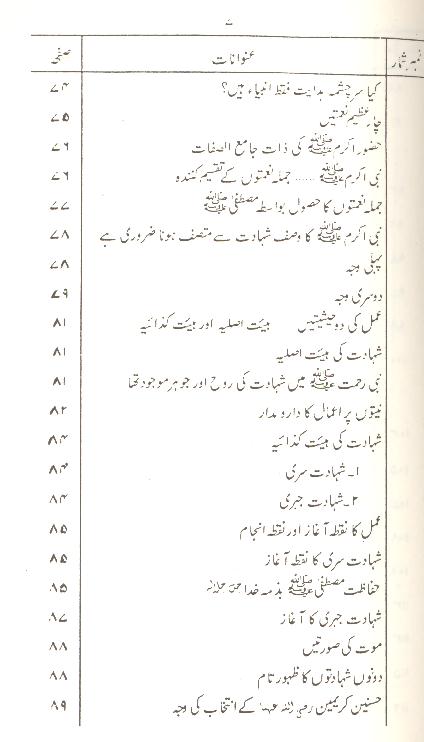 ۷
نمبر شمار عنوانات صفحہ
کیا سرچشمہ ہدایت فقط انبیاء ہیں؟ ۷۴
چار عظیم نعمتیں ۷۵
حضور اکرم ﷺ کی ذات جامع الصفات ۷۶
نبی اکرم ﷺ ..... جملہ نعمتوں کے تقسیم کنندہ ۷۶
جملہ نعمتوں کا حصول بواسطہ مصطفیٰ ﷺ ۷۷
نبی اکرم ﷺ کا وصف شہادت سے متصف ہونا ضروری ہے ۷۸
پہلی وجہ ۷۸
دوسری وجہ ۷۹
عمل کی دو حیثیتیں ..... ہیئت اصلیہ اور ہیئت کذائیہ ۸۱
شہادت کی ہیئت اصلیہ ۸۱
نبی رحمت ﷺ میں شہادت کی روح اور جوہر موجود تھا ۸۱
نیتوں پر اعمال کا دارومدار ۸۲
شہادت کی ہیئت کذائیہ ۸۴
۱۔ شہادت سری ۸۴
۲۔ شہادت جہری ۸۴
عمل کا نقطہ آغاز اور نقطہ انجام ۸۵
شہادت سری کا نقطہ آغاز ۸۵
حفاظت مصطفیٰ ﷺ بذمہ خدا جل جلالہ ۸۵
شہادت جہری کا آغاز ۸۷
موت کی صورتیں ۸۸
دونوں شہادتوں کا ظہور تام ۸۸
حسنین کریمین رضی اللہ عنہما کے انتخاب کی وجہ ۸۹